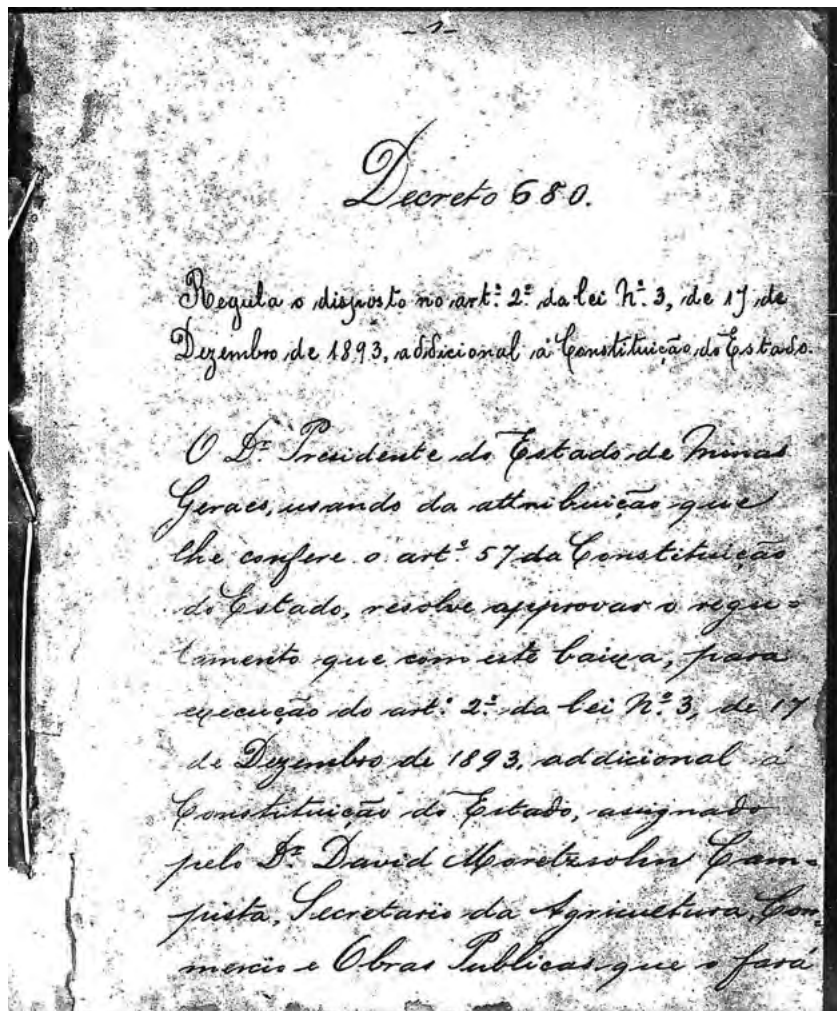 -1-
Decreto 680.
Regula o disposto no art.º 2.º da lei N.º 3, de 17 de
Dezembro de 1893, addicional á Constituição do Estado.
O Dr. Presidente do Estado de Minas
Geraes, usando da attribuição que
lhe confere o art.º 57 da Constituição
do Estado, resolve approvar o regu=
lamento que com este baixa, para
execução do art.º 2.º da lei N.º 3, de 17
de Dezembro de 1893, addicional á
Constituição do Estado, assignado
pelo Dr. David Moretzsohn Cam=
pista, Secretario da Agricultura, Com=
mercio e Obras Publicas que o fará